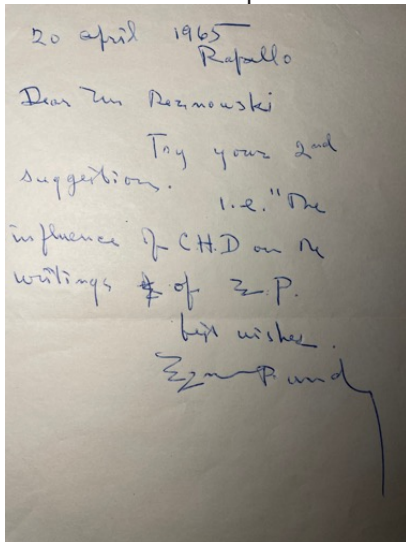 20 april 1965
Rapallo
Dear Mr Rezmowski
Try your 2nd
suggestion.
i.e. "The
influence of C.H.D on the
writings of E.P.
best wishes.
Ezra Pound